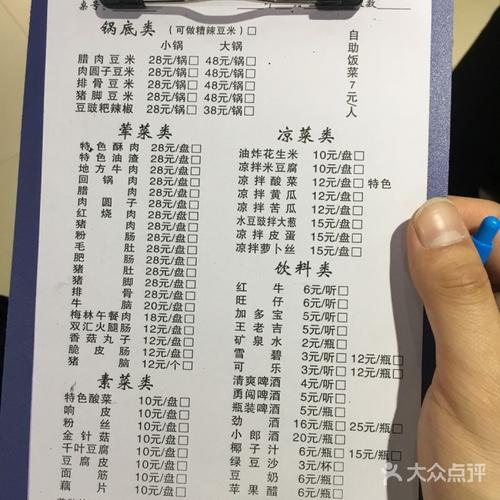 桌号
人数
锅底类（可做糟辣豆米）□
小锅 大锅
腊肉豆米 28元/锅□ 48元/锅□
肉圆子豆米 28元/锅□ 48元/锅□
排骨豆米 28元/锅□ 48元/锅□
猪脚豆米 28元/锅□ 48元/锅□
豆豉粑辣椒 28元/锅□ 38元/锅□
自助饭菜7元/人
荤菜类
特色酥肉 28元/盘□
特色油渣 28元/盘□
地方牛肉 28元/盘□
回锅肉 28元/盘□
腊肉 28元/盘□
肉圆子 28元/盘□
红烧肉 28元/盘□
猪肉 28元/盘□
粉肠 28元/盘□
毛肚 28元/盘□
肥肠 28元/盘□
猪肚 28元/盘□
猪脚 28元/盘□
排骨 28元/盘□
牛脑 20元/盘□
梅林午餐肉 18元/盘□
双汇火腿肠 12元/盘□
香菇丸子 12元/盘□
脆皮肠 12元/盘□
猪脑 12元/个□
素菜类
特色酸菜 10元/盘□
响皮 10元/盘□
粉丝 10元/盘□
金针菇 10元/盘□
千叶豆腐 10元/盘□
豆腐皮 10元/盘□
面筋 10元/盘□
藕片 10元/盘□
凉菜类
油炸花生米 10元/盘□
凉拌米豆腐 10元/盘□
凉拌酸菜 12元/盘□ 特色
凉拌黄瓜 12元/盘□
凉拌苦瓜 12元/盘□
水豆豉拌大葱 15元/盘□
凉拌皮蛋 15元/盘□
凉拌萝卜丝 15元/盘□
饮料类
红牛 6元/听□
旺仔 6元/听□
加多宝 5元/听□
王老吉 5元/听□
矿泉水 2元/瓶□
雪碧 3元/听□ 12元/瓶□
可乐 3元/听□ 12元/瓶□
清爽啤酒 4元/听□
勇闯啤酒 5元/听□
瓶装啤酒 5元/瓶□
劲酒 16元/瓶□ 25元/瓶□
小郎酒 20元/瓶□
椰子汁 6元/瓶□ 15元/瓶□
绿豆沙 3元/杯□
豆奶 6元/瓶□
苹果醋 6元/瓶□
大众点评